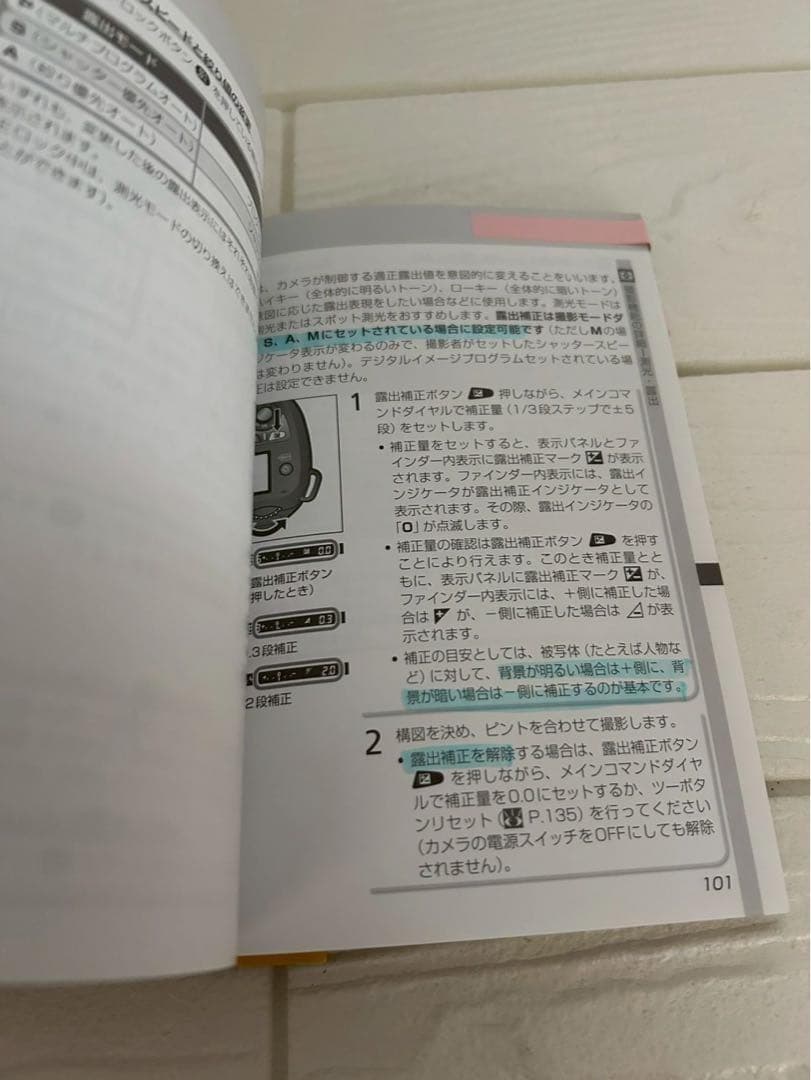 スピードと絞り値の変更
ロックボタン を押している
露出モード
P（マルチプログラムオート）
S（シャッター優先オート）
A（絞り優先オート）
いずれも、変更した後の露出表示にはそれぞれ
表示されます。
ロック中は、測光モードの切り換えはできま
とができます）。
は、カメラが制御する適正露出値を意図的に変えることをいいます。
ハイキー（全体的に明るいトーン）、ローキー（全体的に暗いトーン）
意図に応じた露出表現をしたい場合などに使用します。測光モードは
測光またはスポット測光をおすすめします。露出補正は撮影モードダ
S、A、Mにセットされている場合に設定可能です（ただしMの場
ジケータ表示が変わるのみで、撮影者がセットしたシャッタースピー
は変わりません）。デジタルイメージプログラムセットされている場
正は設定できません。
測光・露出
1
露出補正ボタン 押しながら、メインコマ
ンドダイヤルで補正量（1/3段ステップで±5
段）をセットします。
• 補正量をセットすると、表示パネルとファ
インダー内表示に露出補正マーク が表示
されます。ファインダー内表示には、露出イ
ンジケータが露出補正インジケータとして
表示されます。その際、露出インジケータの
「0」が点滅します。
• 補正量の確認は露出補正ボタン を押す
ことにより行えます。このとき補正量とと
もに、表示パネルに露出補正マーク が、
ファインダー内表示には、＋側に補正した場
合は が、－側に補正した場合は が表
示されます。
• 補正の目安としては、被写体（たとえば人物な
ど）に対して、背景が明るい場合は＋側に、背
景が暗い場合は－側に補正するのが基本です。
0.0
露出補正ボタン
押したとき）
0.3
.3段補正
2.0
2段補正
2
構図を決め、ピントを合わせて撮影します。
• 露出補正を解除する場合は、露出補正ボタン
を押しながら、メインコマンドダイヤ
ルで補正量を0.0にセットするか、ツーボタ
ンリセット（ P.135）を行ってください
（カメラの電源スイッチをOFFにしても解除
されません）。
101